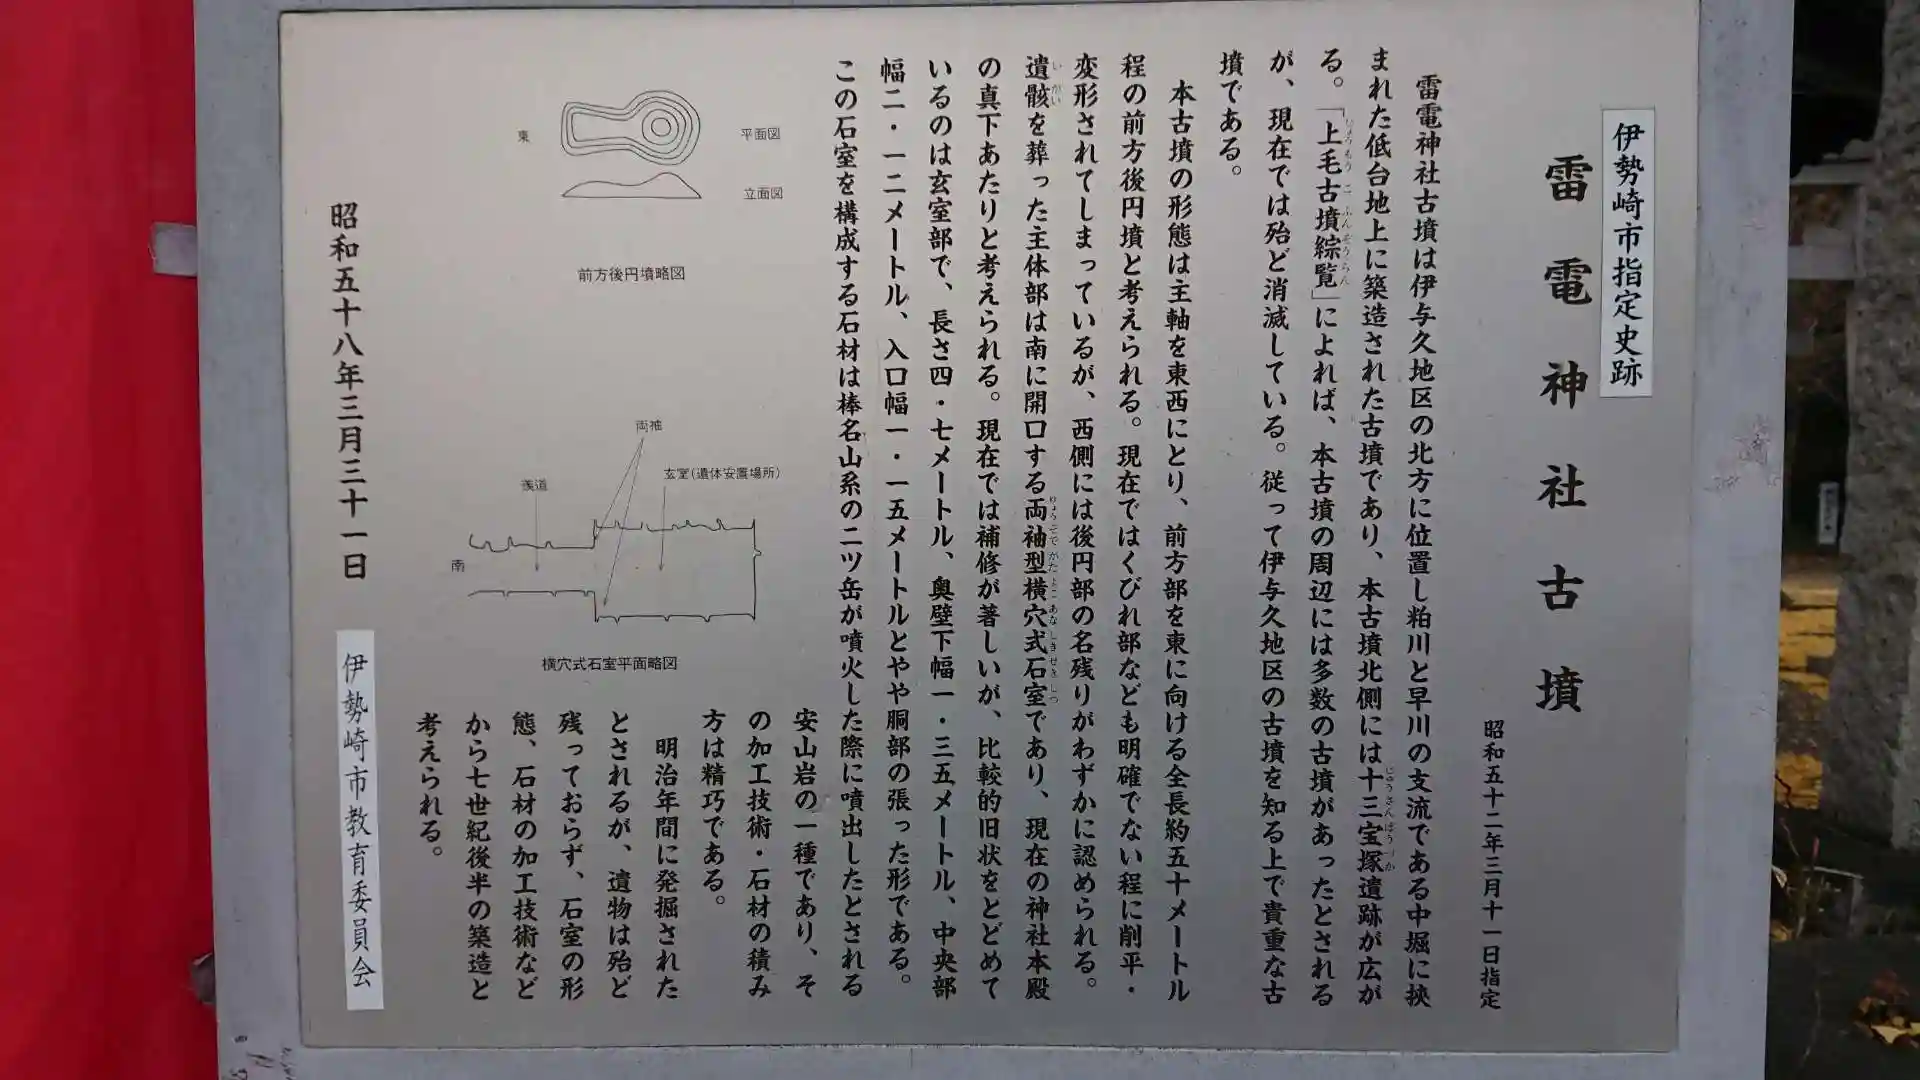 伊勢崎市指定史跡
雷電神社古墳
昭和五十二年三月十一日指定
雷電神社古墳は伊与久地区の北方に位置し粕川と早川の支流である中堀に挾
まれた低台地上に築造された古墳であり、本古墳北側には十三宝塚遺跡が広が
る。「上毛古墳綜覧」によれば、本古墳の周辺には多数の古墳があったとされる
が、現在では殆ど消滅している。従って伊与久地区の古墳を知る上で貴重な古
墳である。
本古墳の形態は主軸を東西にとり、前方部を東に向ける全長約五十メートル
程の前方後円墳と考えられる。現在ではくびれ部なども明確でない程に削平・
変形されてしまっているが、西側には後円部の名残りがわずかに認められる。
遺骸を葬った主体部は南に開口する両袖型横穴式石室であり、現在の神社本殿
の真下あたりと考えられる。現在では補修が著しいが、比較的旧状をとどめて
いるのは玄室部で、長さ四・七メートル、奥壁下幅一・三五メートル、中央部
幅二・一二メートル、入口幅一・一五メートルとやや胴部の張った形である。
この石室を構成する石材は棒名山系の二ツ岳が噴火した際に噴出したとされる
安山岩の一種であり、そ
の加工技術・石材の積み
方は精巧である。
明治年間に発掘された
とされるが、遺物は殆ど
残っておらず、石室の形
態、石材の加工技術など
から七世紀後半の築造と
考えられる。
東
平面図
立面図
前方後円墳略図
両袖
玄室(遺体安置場所)
羨道
南
横穴式石室平面略図
昭和五十八年三月三十一日
伊勢崎市教育委員会